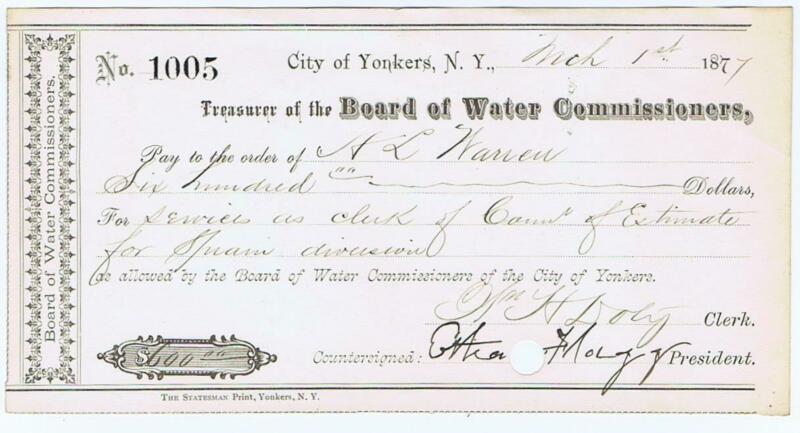 Board of Water Commissioners.
No. 1005 City of Yonkers, N. Y., Mch 1st 1877
Treasurer of the Board of Water Commissioners,
Pay to the order of A L Warren
Six hundred 00 Dollars,
For services as clerk of Comrs of Estimate
for division
as allowed by the Board of Water Commissioners of the City of Yonkers.
Wm H Doty Clerk.
$600.00 Countersigned: Ethan Flagg President.
THE STATESMAN Print, Yonkers, N. Y.